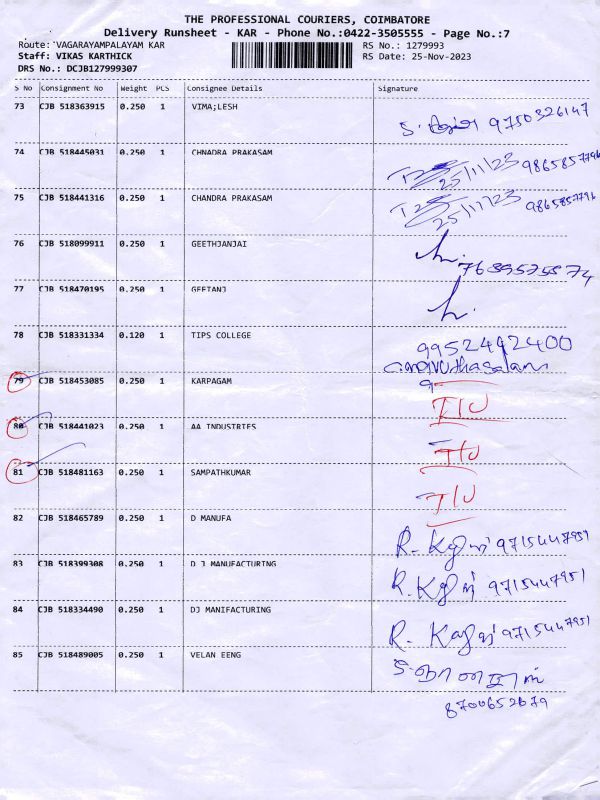 THE PROFESSIONAL COURIERS, COIMBATORE
Delivery Runsheet - KAR - Phone No.:0422-3505555 - Page No.:7
Route: VAGARAYAMPALAYAM KAR RS No.: 1279993
Staff: VIKAS KARTHICK RS Date: 25-Nov-2023
DRS No.: DCJB127999307
S No Consignment No Weight PCS Consignee Details Signature
73 CJB 518363915 0.250 1 VIMA;LESH 9750326147
74 CJB 518445031 0.250 1 CHNADRA PRAKASAM 25/11/23 9865857796
75 CJB 518441316 0.250 1 CHANDRA PRAKASAM 25/11/23 9865857796
76 CJB 518099911 0.250 1 GEETHJANJAI
77 CJB 518470195 0.250 1 GEETANJ
78 CJB 518331334 0.120 1 TIPS COLLEGE 9952442400
79 CJB 518453085 0.250 1 KARPAGAM I/U
80 CJB 518441023 0.250 1 AA INDUSTRIES I/U
81 CJB 518481163 0.250 1 SAMPATHKUMAR I/U
82 CJB 518465789 0.250 1 D MANUFA 9715447951
83 CJB 518399308 0.250 1 D J MANUFACTURING 9715447951
84 CJB 518334490 0.250 1 DJ MANIFACTURING 9715447951
85 CJB 518489005 0.250 1 VELAN EENG
8700652679